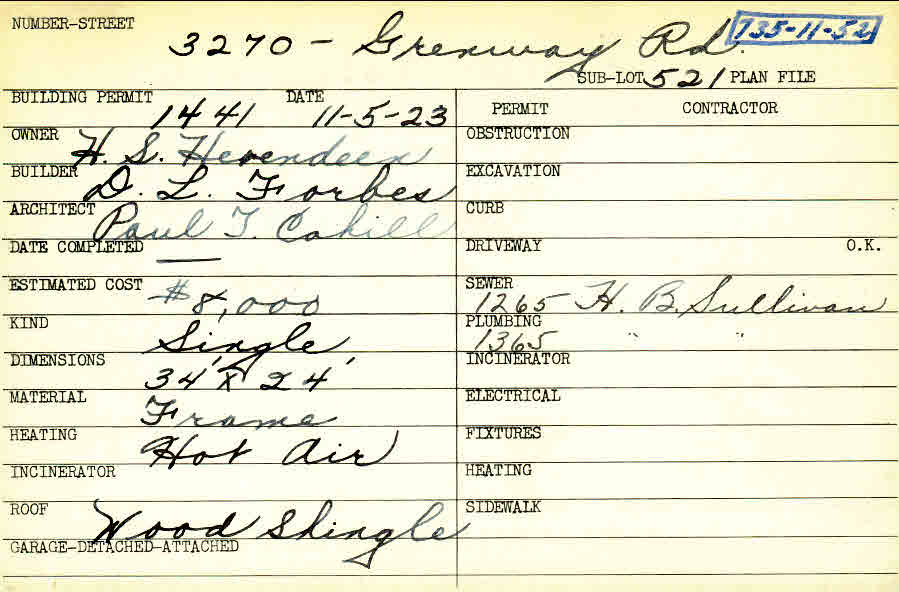 NUMBER-STREET
3270 - Grenway Rd. 735-11-52
SUB-LOT 521 PLAN FILE
BUILDING PERMIT 1441 DATE 11-5-23
OWNER H. S. Herendeen
BUILDER D. L. Forbes
ARCHITECT Paul T. Cahill
DATE COMPLETED —
ESTIMATED COST $8,000
KIND Single
DIMENSIONS 34' x 24'
MATERIAL Frame
HEATING Hot Air
INCINERATOR
ROOF Wood Shingle
GARAGE-DETACHED-ATTACHED
PERMIT CONTRACTOR
OBSTRUCTION
EXCAVATION
CURB
DRIVEWAY O.K.
SEWER 1265 H. B. Sullivan
PLUMBING 1365 " "
INCINERATOR
ELECTRICAL
FIXTURES
HEATING
SIDEWALK